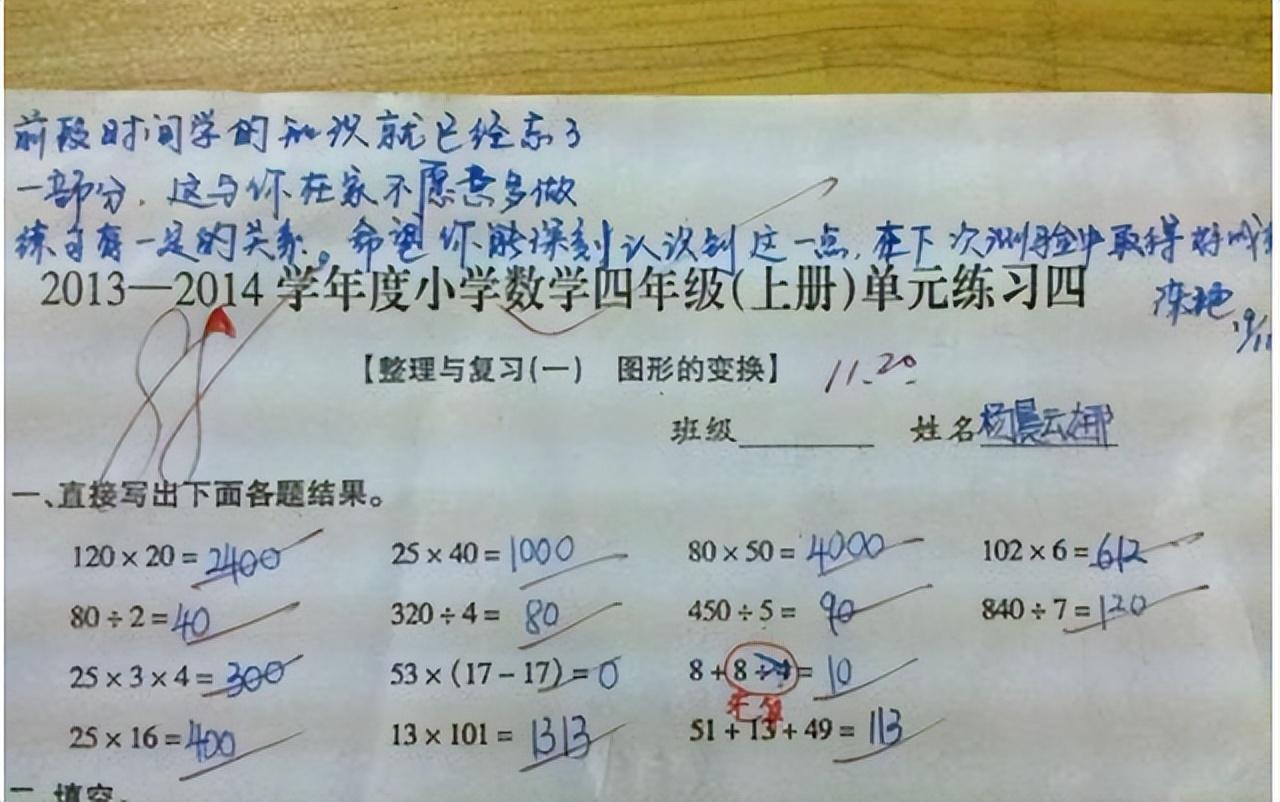 前段时间学的知识就已经忘了
一部分，这与你在家不愿意多做
练习有一定的关系。希望你能深刻认识到这一点，在下次测验中取得好成
2013—2014学年度小学数学四年级(上册)单元练习四
88
【整理与复习(一) 图形的变换】 11.20
班级 姓名杨晨云
一、直接写出下面各题结果。
120×20=2400 25×40=1000 80×50=4000 102×6=612
80÷2=40 320÷4=80 450÷5=90 840÷7=120
25×3×4=300 53×(17-17)=0 8+8÷4=10
先算
25×16=400 13×101=1313 51+13+49=113
二、填空。